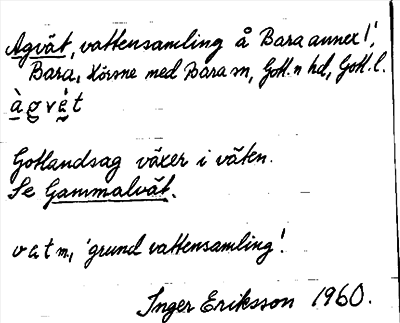 Agvät, vattensamling å Bara annex 1/,
Bara, Hörsne med Bara sn, Gotl. n hd, Gotl. l.
àgvèt
Gotlandsag växer i väten.
Se Gammalvät.
vät m, 'grund vattensamling'.
Inger Eriksson 1960.